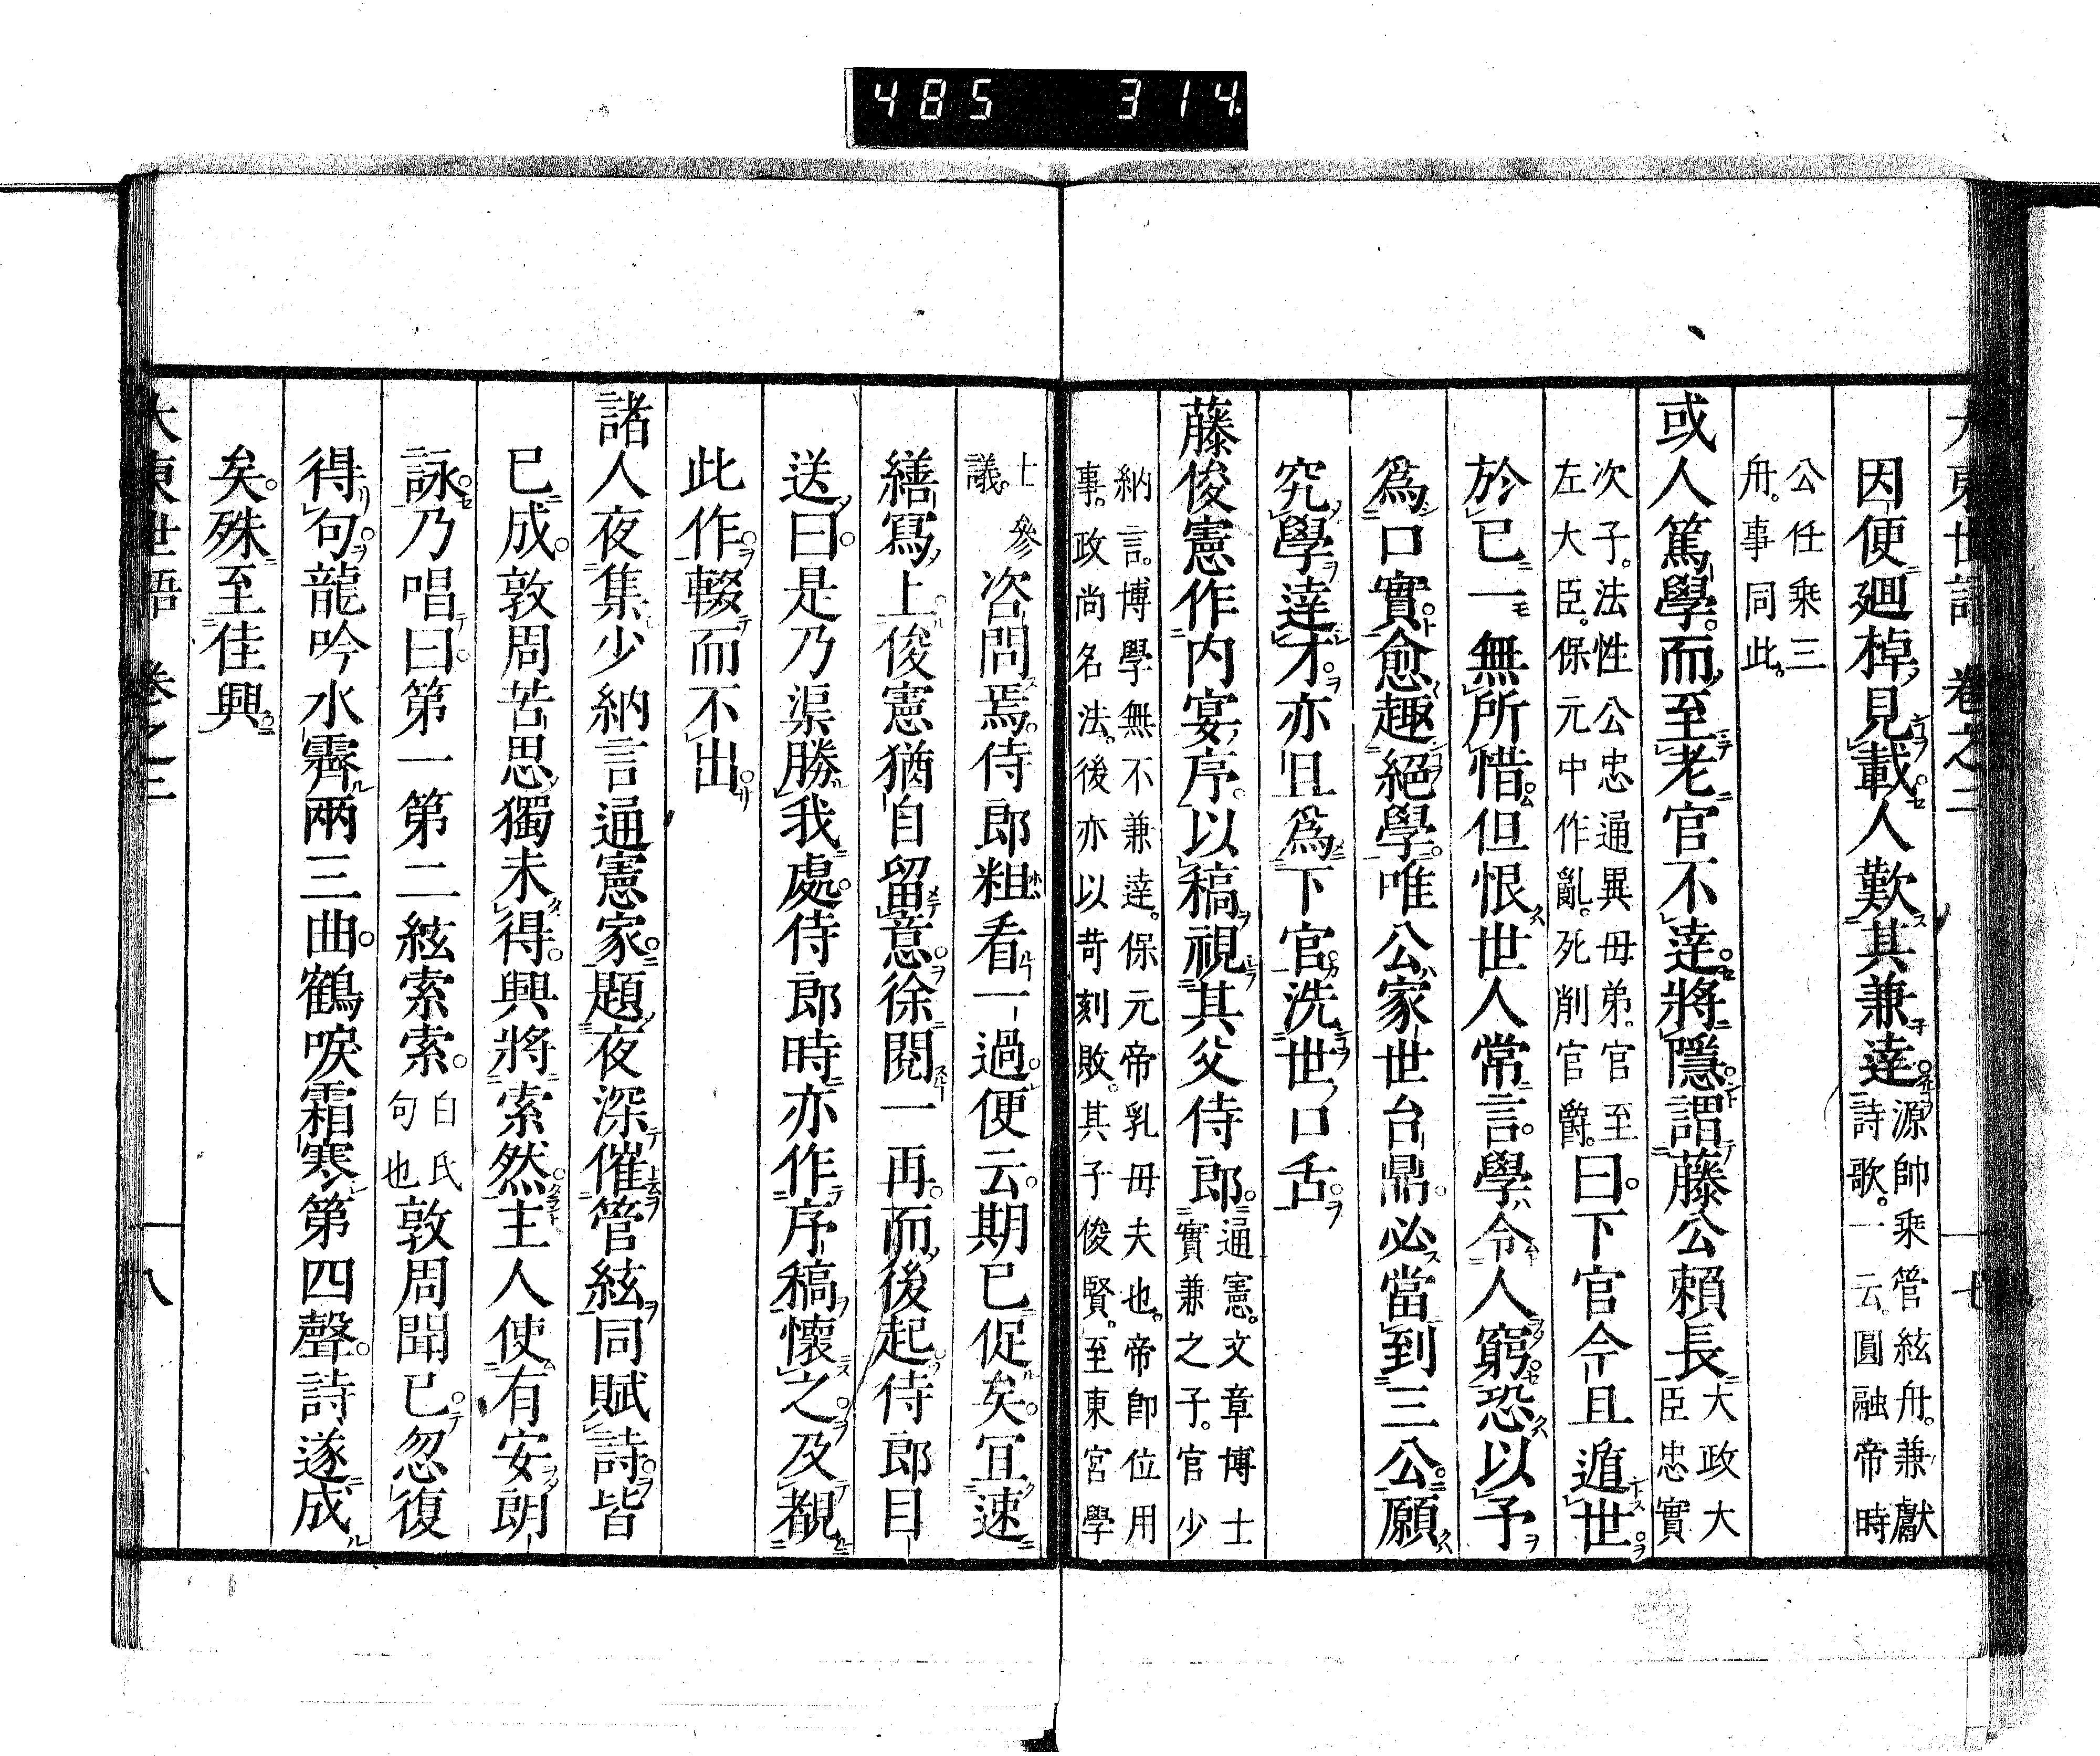 485 314
大東世語 卷之三 七
因便廻棹見載人歎其兼達源帥乘管絃舟兼獻詩歌一云圓融帝時
公任乘三舟事同此
或人篤學而至老官不達將隱謂藤公賴長大政大臣忠實
次子法性公忠通異母弟官至左大臣保元中作亂死削官爵曰下官今且遁世
於已一無所惜但恨世人常言學令人窮恐以予
爲口實愈趣絕學唯公家世台鼎必當到三公願
究學達才亦且爲下官洗世口舌
藤俊憲作内宴序以稿視其父侍郎通憲文章博士實兼之子官少
納言博學無不兼達保元帝乳母夫也帝即位用事政尚名法後亦以苛刻敗其子俊賢至東宮學
士參議咨問焉侍郎粗看一過便云期已促矣宜速
繕寫上俊憲猶自留意徐閱一再而後起侍郎目
送曰是乃渠勝我處侍郎時亦作序稿懷之及覩
此作輟而不出
諸人夜集少納言通憲家題夜深催管絃同賦詩皆
已成敦周苦思獨未得興將索然主人使有安朗
詠乃唱曰第一第二絃索索白氏句也敦周聞已忽復
得句龍吟水霽兩三曲鶴唳霜寒第四聲詩遂成
矣殊至佳興
大東世語 卷之三 八